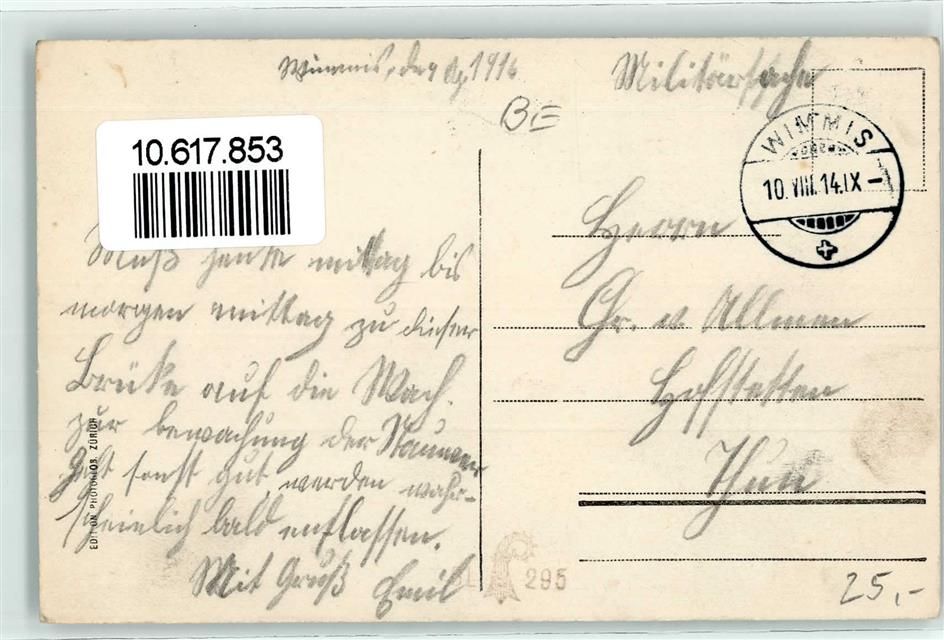 Wimmis, den 9 Ag 1914
Militärsache
BE
10.617.853
WIMMIS
10.VIII.14.IX-
Muß heute mittag bis
morgen mittag zu dieser
Brüke auf die Wach.
zur bewachung der
Geht sonst gut, werden wahr-
scheinlich bald entlassen.
Mit Gruß Emil
Herrn
Gr. v. Allmen
Hofstetten
Thun
EDITION PHOTOGLOB, ZÜRICH
295
25,-